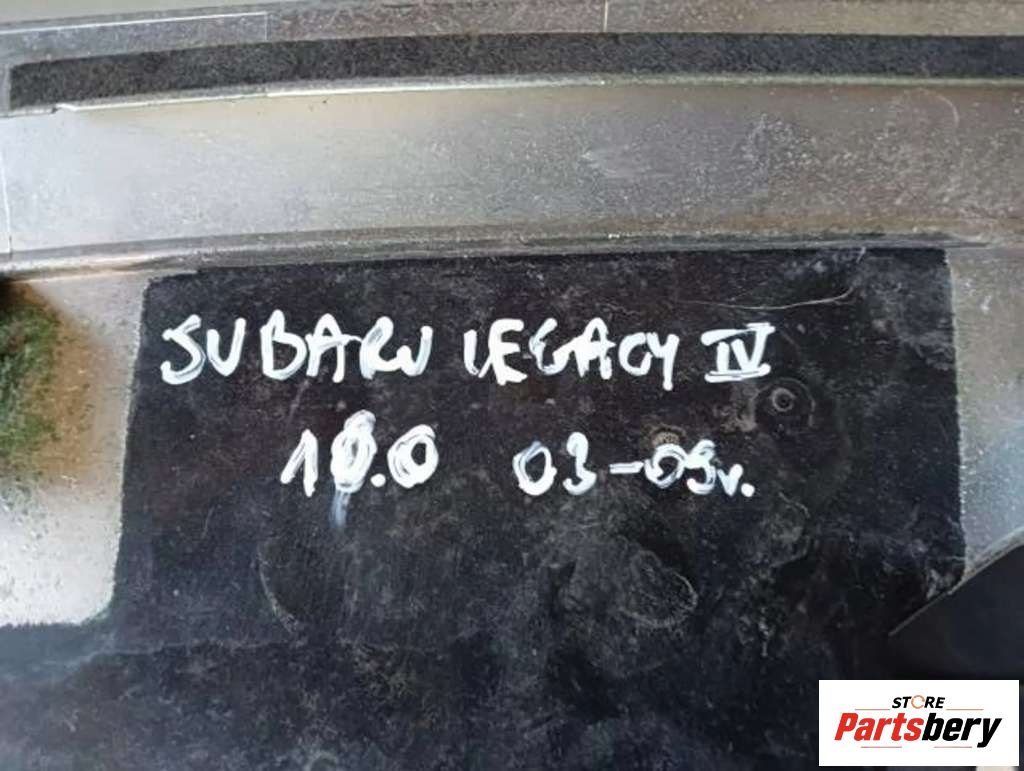 SUBARU LEGACY IV
10.0 03-09r.
STORE
Partsbery